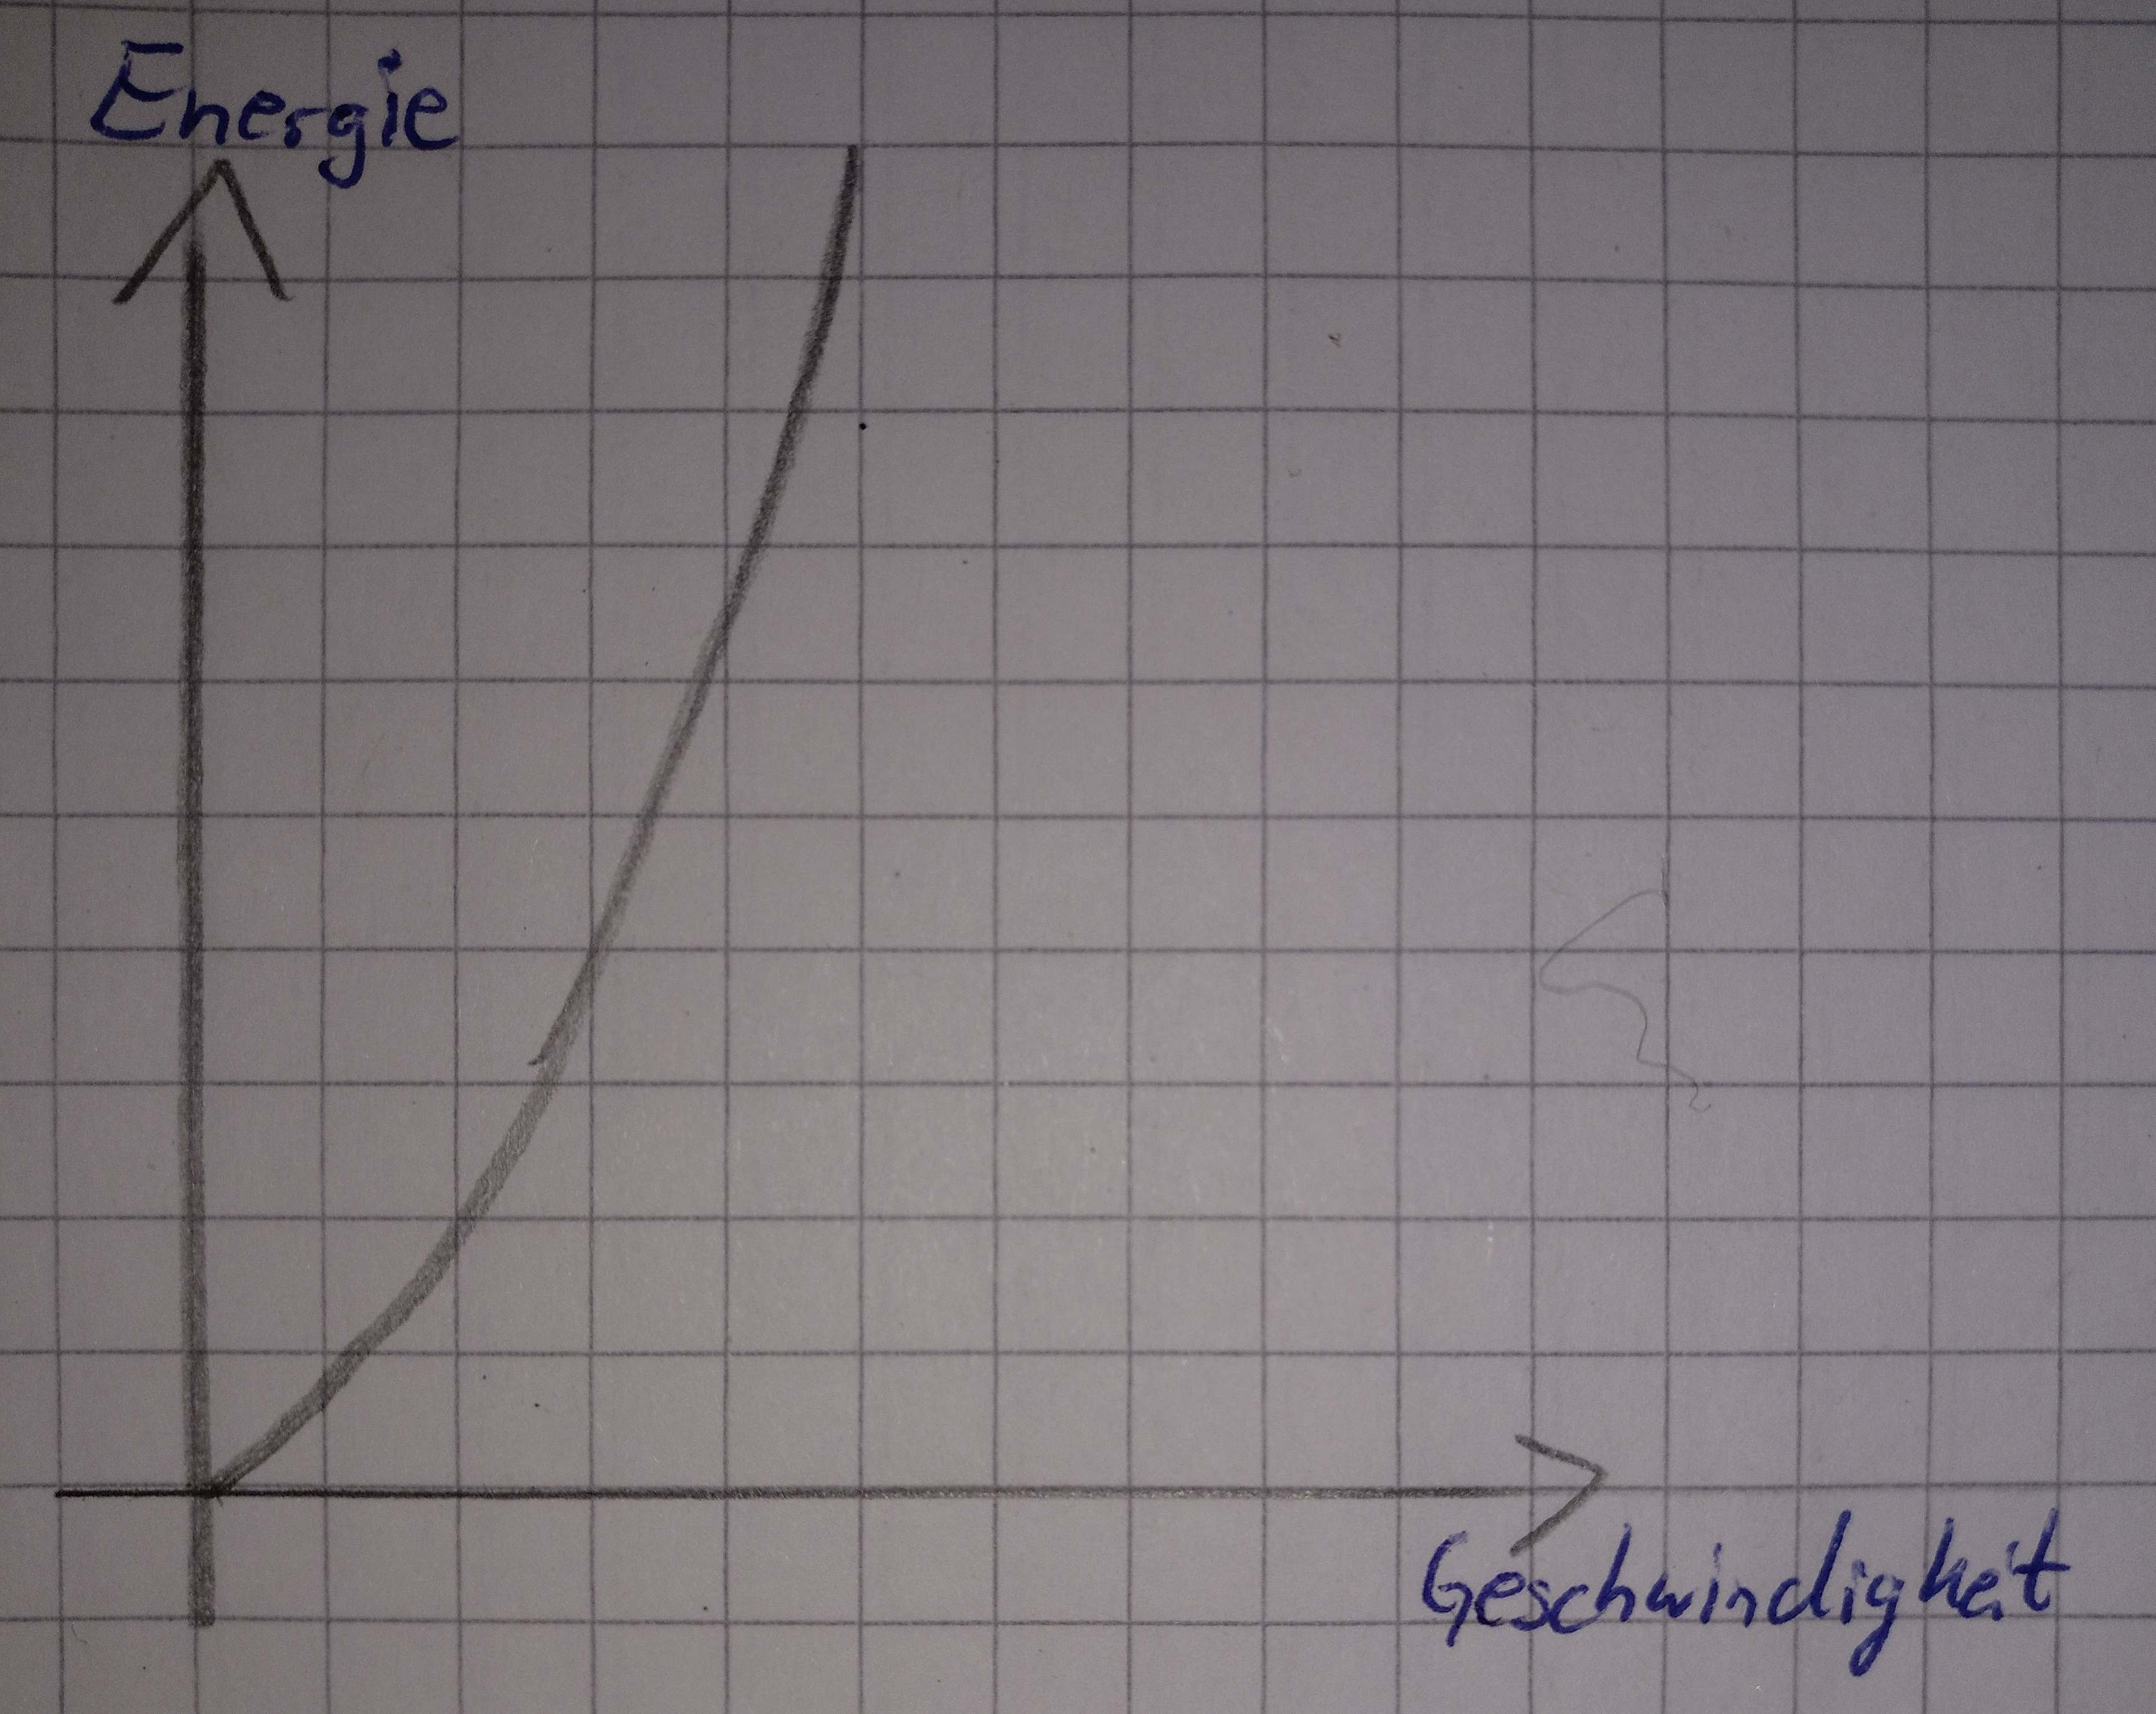 Energie
Geschwindigkeit